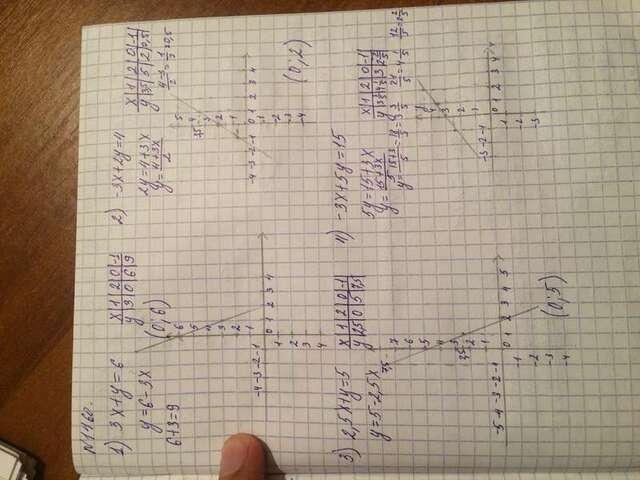 №1160.
1) 3x+y=6
x|1|2|0|-1
y|3|0|6|9
y=6-3x
6+3=9
(0;6)
6
5
4
3
2
1
-4 -3 -2 -1 0 1 2 3 4
-1
-2
-3
-4
2) -3x+2y=4
x|1|2|0|-1
y|3,5|5|2|0,5
2y=4+3x
y=4+3x/2
4-3/2=1/2=0,5
5
4
3,5
3
2
1
-4 -3 -2 -1 0 1 2 3 4
-1
-2
-3
-4
(0;2)
3) 2,5x+y=5
x|1|2|0|-1
y|2,5|0|5|7,5
y=5-2,5x
7,5
7
6
5
4
3
2,5
2
1
-5 -4 -3 -2 -1 0 1 2 3 4 5
-1
-2
-3
-4
(0;5)
4) -3x+5y=15
x|1|2|0|-1
5y=15+3x
y=15+3x/5
y=15+3/5=18/5=3 3/5 21/5=4 1/5 12/5=2 2/5
y
4
3
2
1
0 1 2 3 4 x
-1
-2
-3